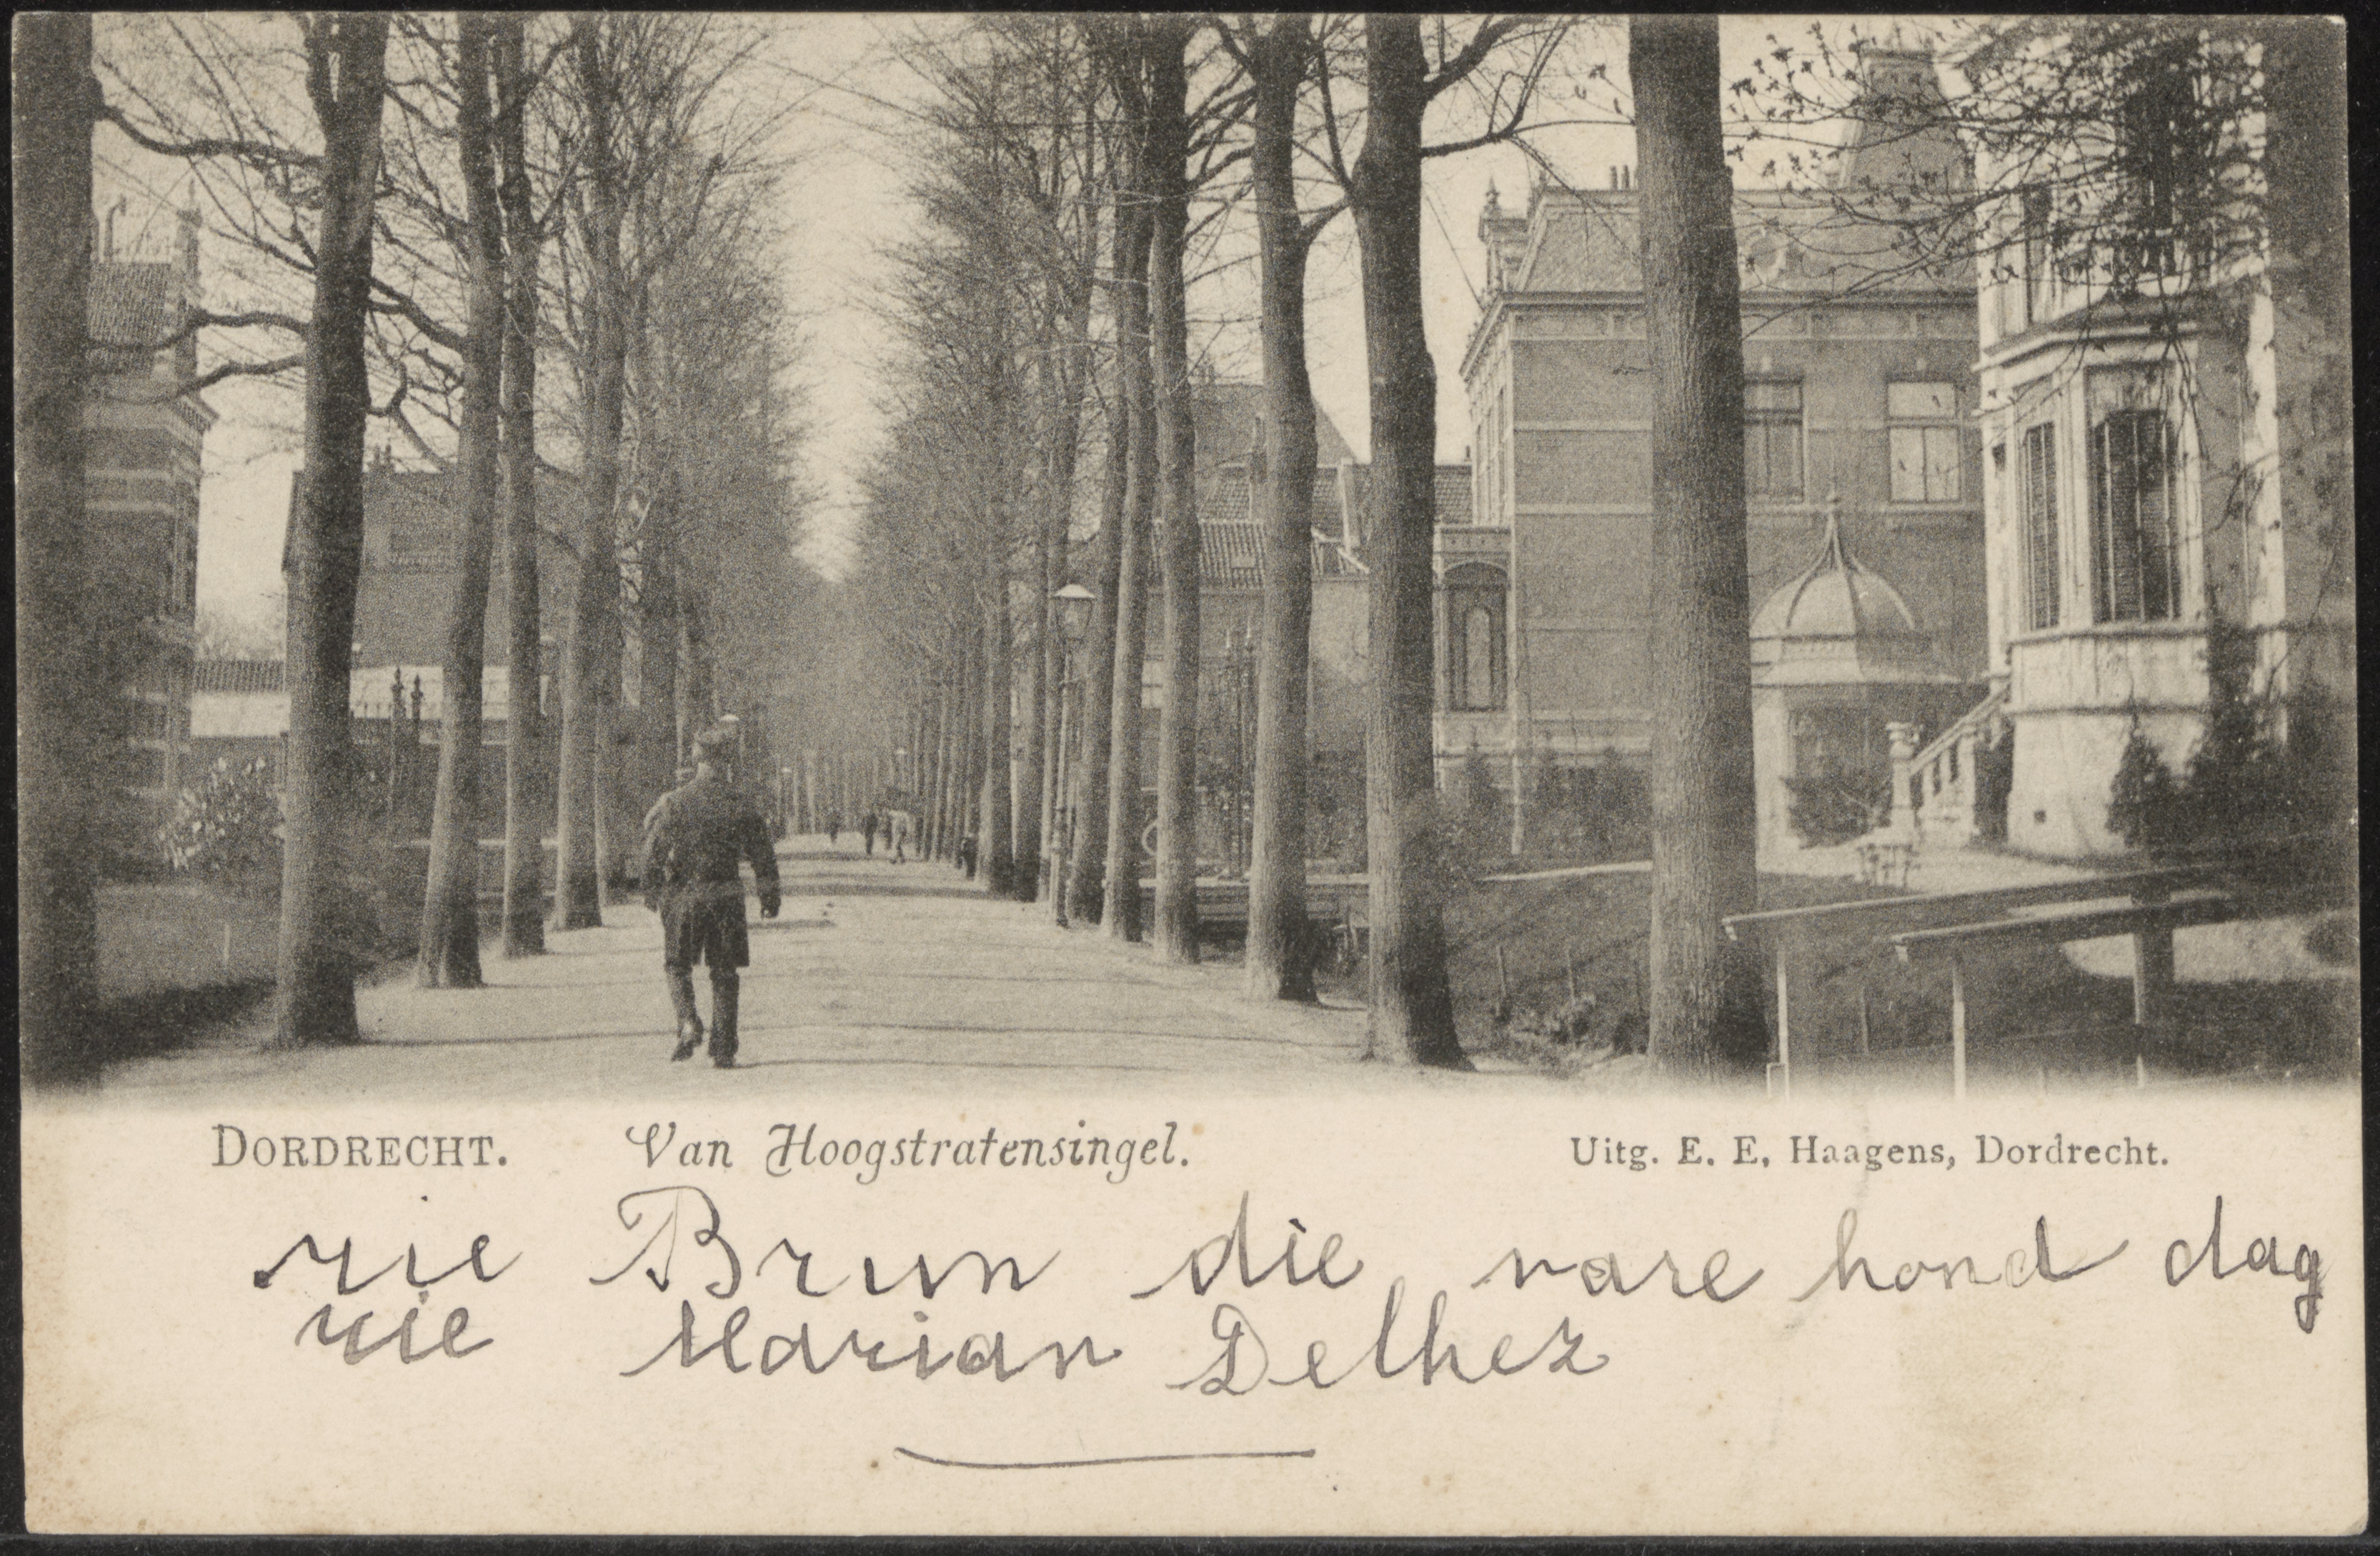 DORDRECHT. Van Hoogstratensingel. Uitg. E. E. Haagens, Dordrecht.
rie Brun die rare hond dag
rie Marian Delhez